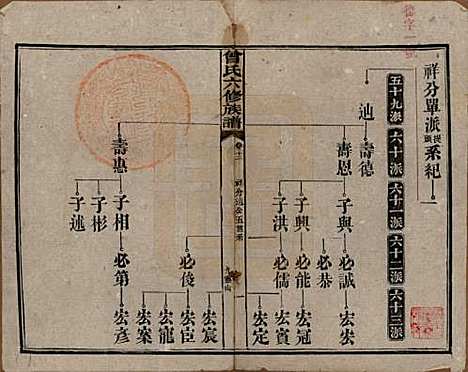 祥分單派 提頭 系紀一
五十九派 六十派 六十一派 六十二派 六十三派
迪 壽德 子興 必誠 宏宏
必恭
壽恩 子興 必能 宏冠
子洪 必儒 宏賓
宏定
曾氏六修族譜
卷十二
必俊 宏宸
宏臣
宏龍
壽惠 子相 必第 宏案
宏彥
子彬
子述